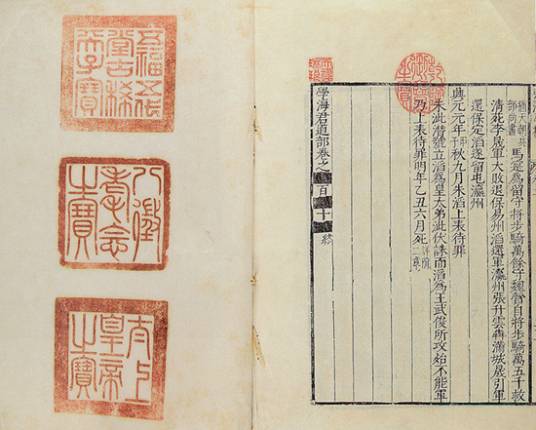 馬寔為留守將步騎萬餘守魏營自將步騎萬五千救
清苑李晟軍大敗退保易州滔還軍瀛州張升雲奔滿城晟引軍
還保定滔遂留屯瀛州
興元元年甲子秋九月朱滔上表待罪
朱泚僭號立滔為皇太弟泚伏誅而滔為王武俊所攻始不能軍
乃上表待罪明年乙丑六月死
學海君道部卷之 百 十 終
乾隆御覽之寶
五福五代堂古稀天子寶
八徵耄念之寶
太上皇帝之寶